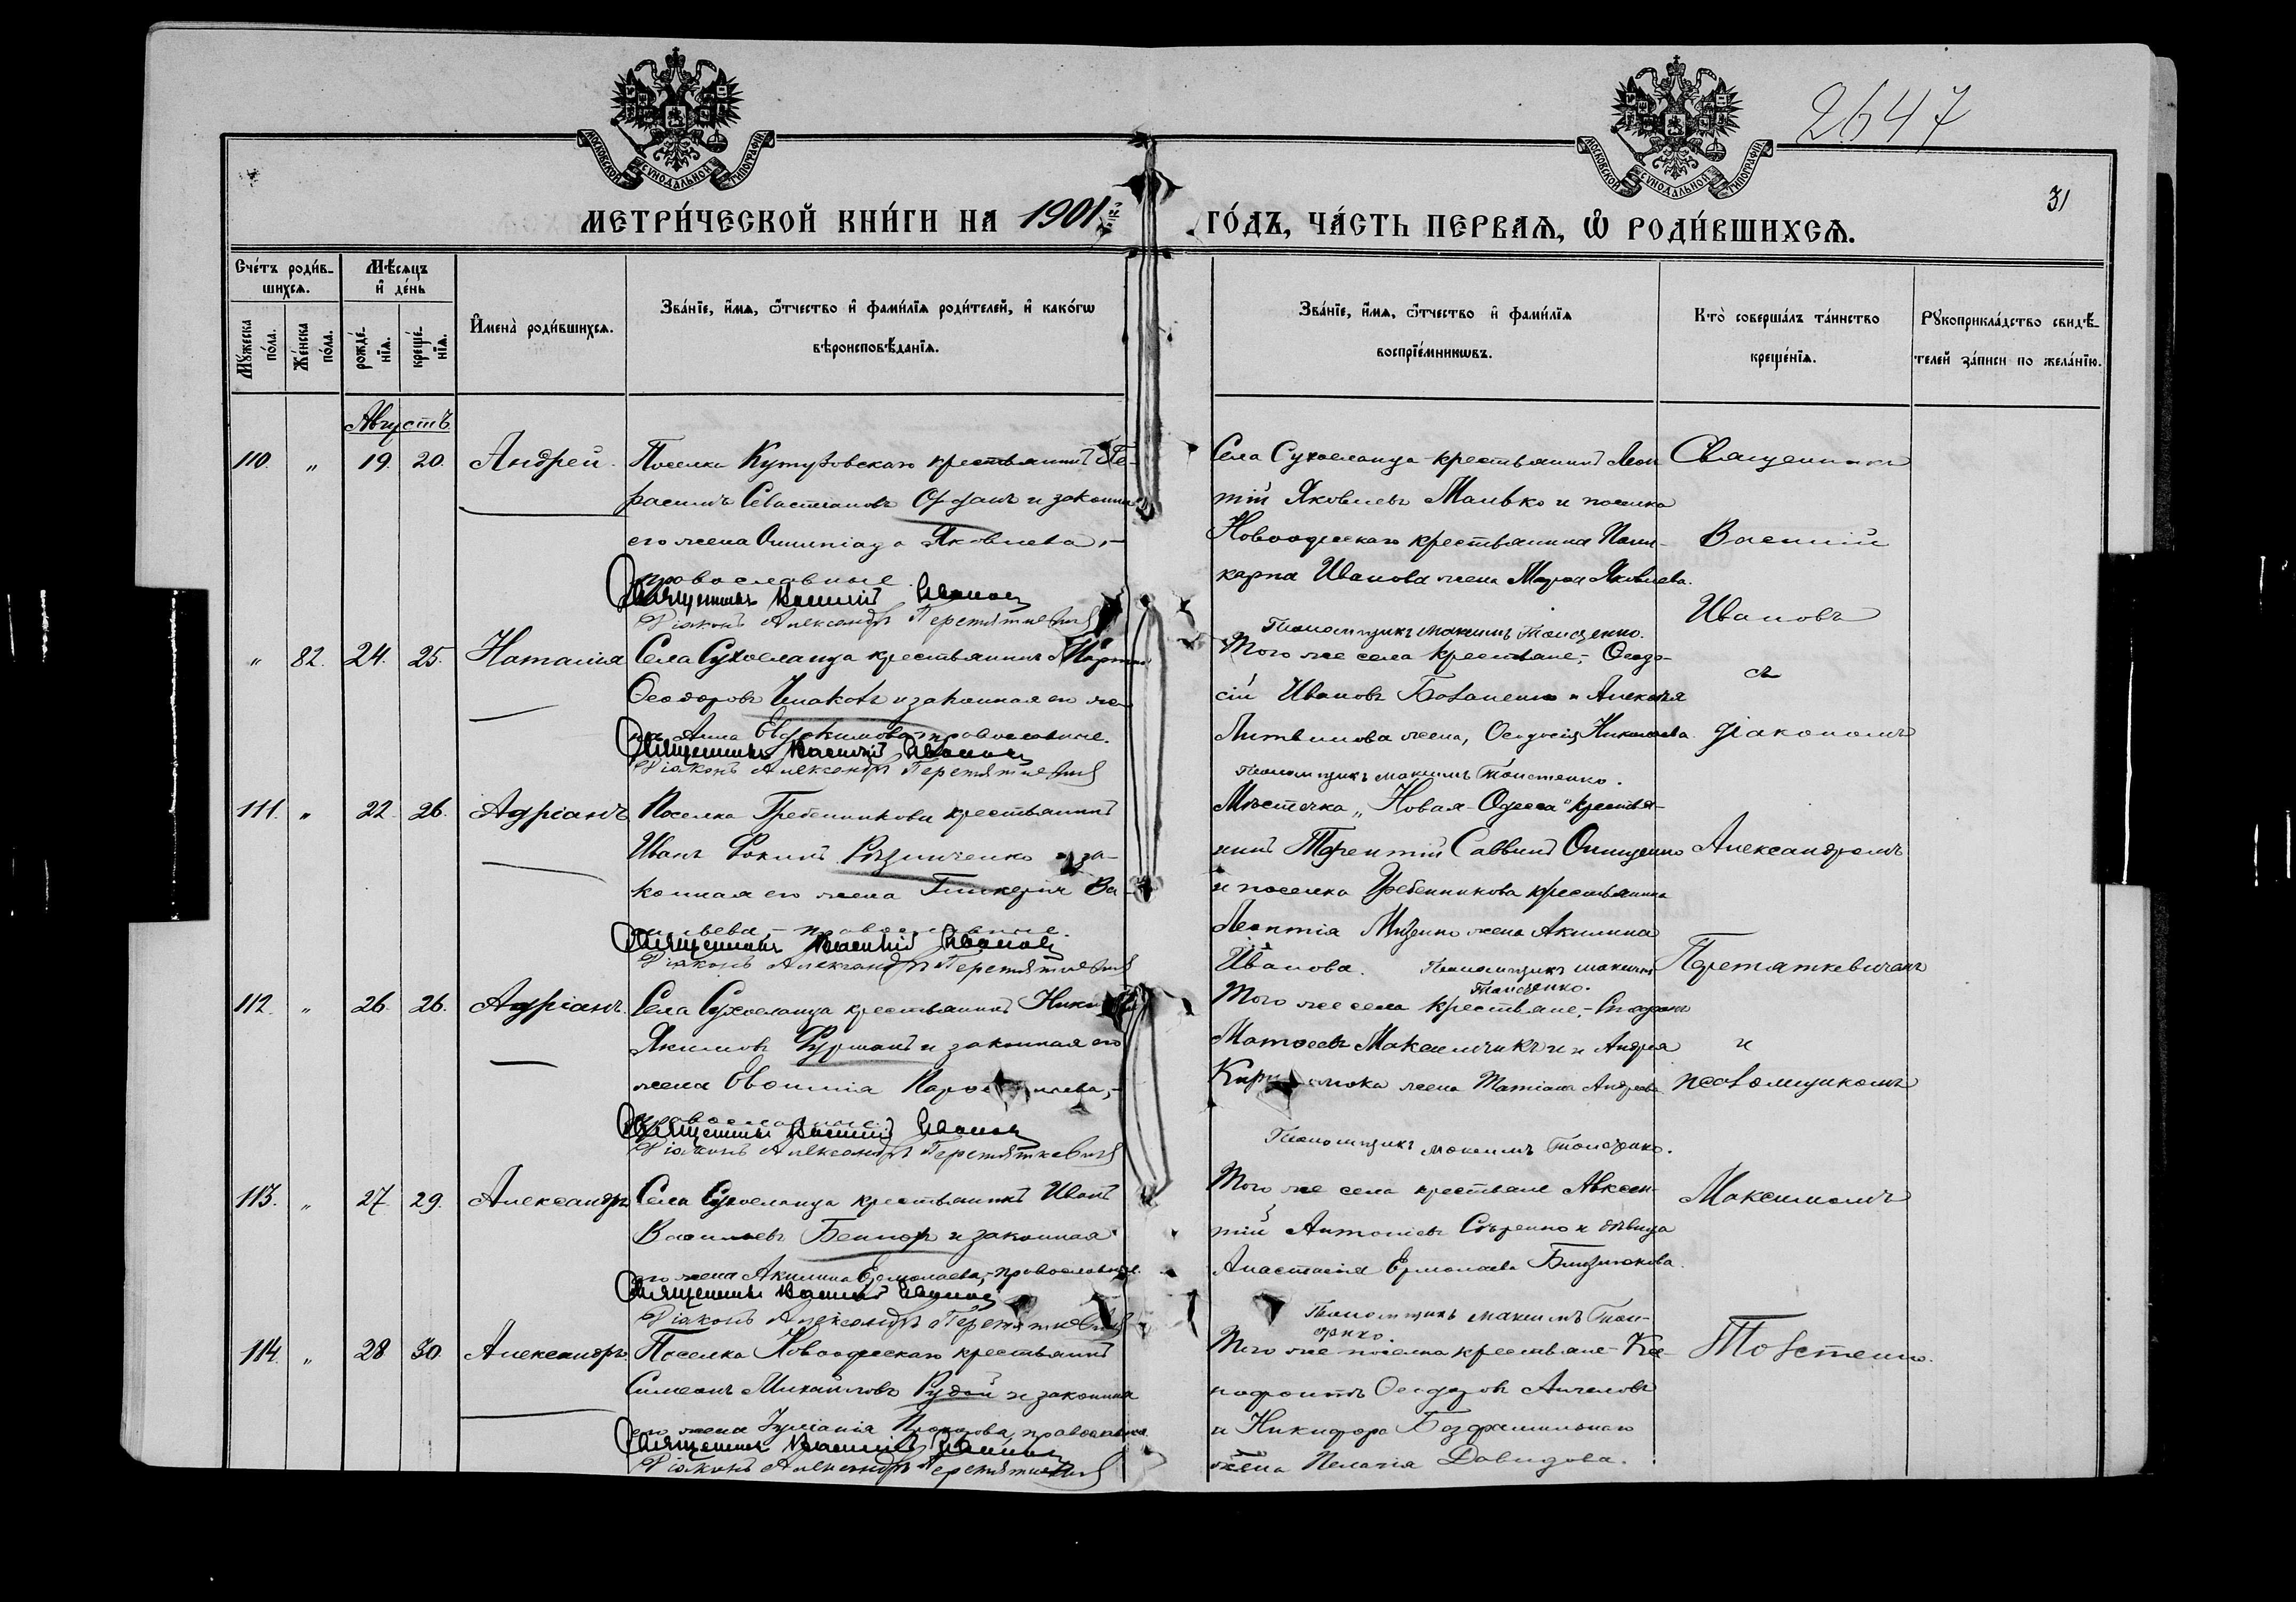 МОСКОВСКОЙ СѴНОДАЛЬНОЙ ТИПОГРАФІИ
МОСКОВСКОЙ СѴНОДАЛЬНОЙ ТИПОГРАФІИ
2647
31
МЕТРИ́ЧЕСКОЙ КНИ́ГИ НА 1901 ГО́ДЪ, ЧА́СТЬ ПЕРВАѦ, Ѡ҆ РОДИ́ВШИХСѦ.
Сче́тъ роди́в-
шихсѧ.
Мѣ́сѧцъ
и҆ де́нь
Мꙋ́жеска
по́ла.
Же́нска
по́ла.
рожде́-
нїѧ.
креще́-
нїѧ.
И҆мена̀ роди́вшихсѧ.
Зва́нїе, и҆́мѧ, ѻ҆́тчество и҆ фами́лїѧ роди́телей, и҆ како́гѡ
вѣроисповѣ́данїѧ.
Зва́нїе, и҆́мѧ, ѻ҆́тчество и҆ фами́лїѧ
воспрїе́мникѡвъ.
Кто̀ соверша́лъ та́инство
креще́нїѧ.
Рꙋкоприкла́дство свидѣ́-
телей за́писи по жела́нїю.
Августъ
110. „ 19. 20. Андрей. Поселка Кутузовскаго крестьянинъ Ге-
расимъ Севастіановъ и законная
его жена Олимпіада Яковлева,-
православные.
Священникъ Василій Иванов
Діаконъ Александръ Перетяткевичъ
Села Сухоеланца крестьянинъ Леон-
тій Яковлевъ Малько и поселка
Новоодесскаго крестьянина Поли-
карпа Иванова жена Марѳа Яковлева.
Псаломщикъ Максимъ Товстенко.
Священникъ
Василій
Ивановъ
съ
діакономъ
Александромъ
Перетяткевичемъ
и
псаломщикомъ
Максимомъ
Товстенко.
„ 82. 24. 25. Наталія Села Сухоеланца крестьянинъ
Ѳеодоровъ и законная его же-
на Анна Евдокимова православные.
Священникъ Василій Иванов
Діаконъ Александръ Перетяткевичъ
Того же села крестьяне,- Ѳеодо-
сій Ивановъ и Алексѣя
Литвинова жена, Ѳеодосія Николаева.
Псаломщикъ Максимъ Товстенко.
111. „ 22. 26. Адріанъ Поселка Гребенникова крестьянинъ
Иванъ Фокинъ и за-
конная его жена Гликерія Ва-
сильева,- православные.
Священникъ Василій Иванов
Діаконъ Александръ Перетяткевичъ
Мѣстечка „Новая-Одесса" крестья-
нинъ Терентій Саввинъ Онищенко
и поселка Гребенникова крестьянина
Леонтія жена Акилина
Иванова. Псаломщикъ Максимъ
Товстенко.
112. „ 26. 26. Адріанъ. Села Сухоеланца крестьянинъ
Якимовъ Фурманъ и законная его
жена Евѳимія
православные.
Священникъ Василій Иванов
Діаконъ Александръ Перетяткевичъ
Того же села крестьяне,-
Матѳеевъ Максимчикъ и Андрея
жена Татіана Андреева
Псаломщикъ Максимъ Товстенко.
113. „ 27. 29. Александръ Села Сухоеланца крестьянинъ Иванъ
Васильевъ и законная
его жена Акилина Ермолаева,- православные.
Священникъ Василій Иванов
Діаконъ Александръ Перетяткевичъ
Того же села крестьяне Авксен-
тій Антоніевъ и дѣвица
Анастасія Ермолаева
Псаломщикъ Максимъ Товс-
тенко.
114. „ 28 30. Александръ. Поселка Новоодесскаго крестьянинъ
Симеонъ Михайловъ Рудой и законная
его жена Іуліанія Прохорова, православные.
Священникъ Василій Иванов
Діаконъ Александръ Перетяткевичъ
Того же поселка крестьяне- Ксе-
нофонтъ Ѳеодоровъ Ангеловъ
и Никифора Безфамильнаго
жена Пелагія Давидова.